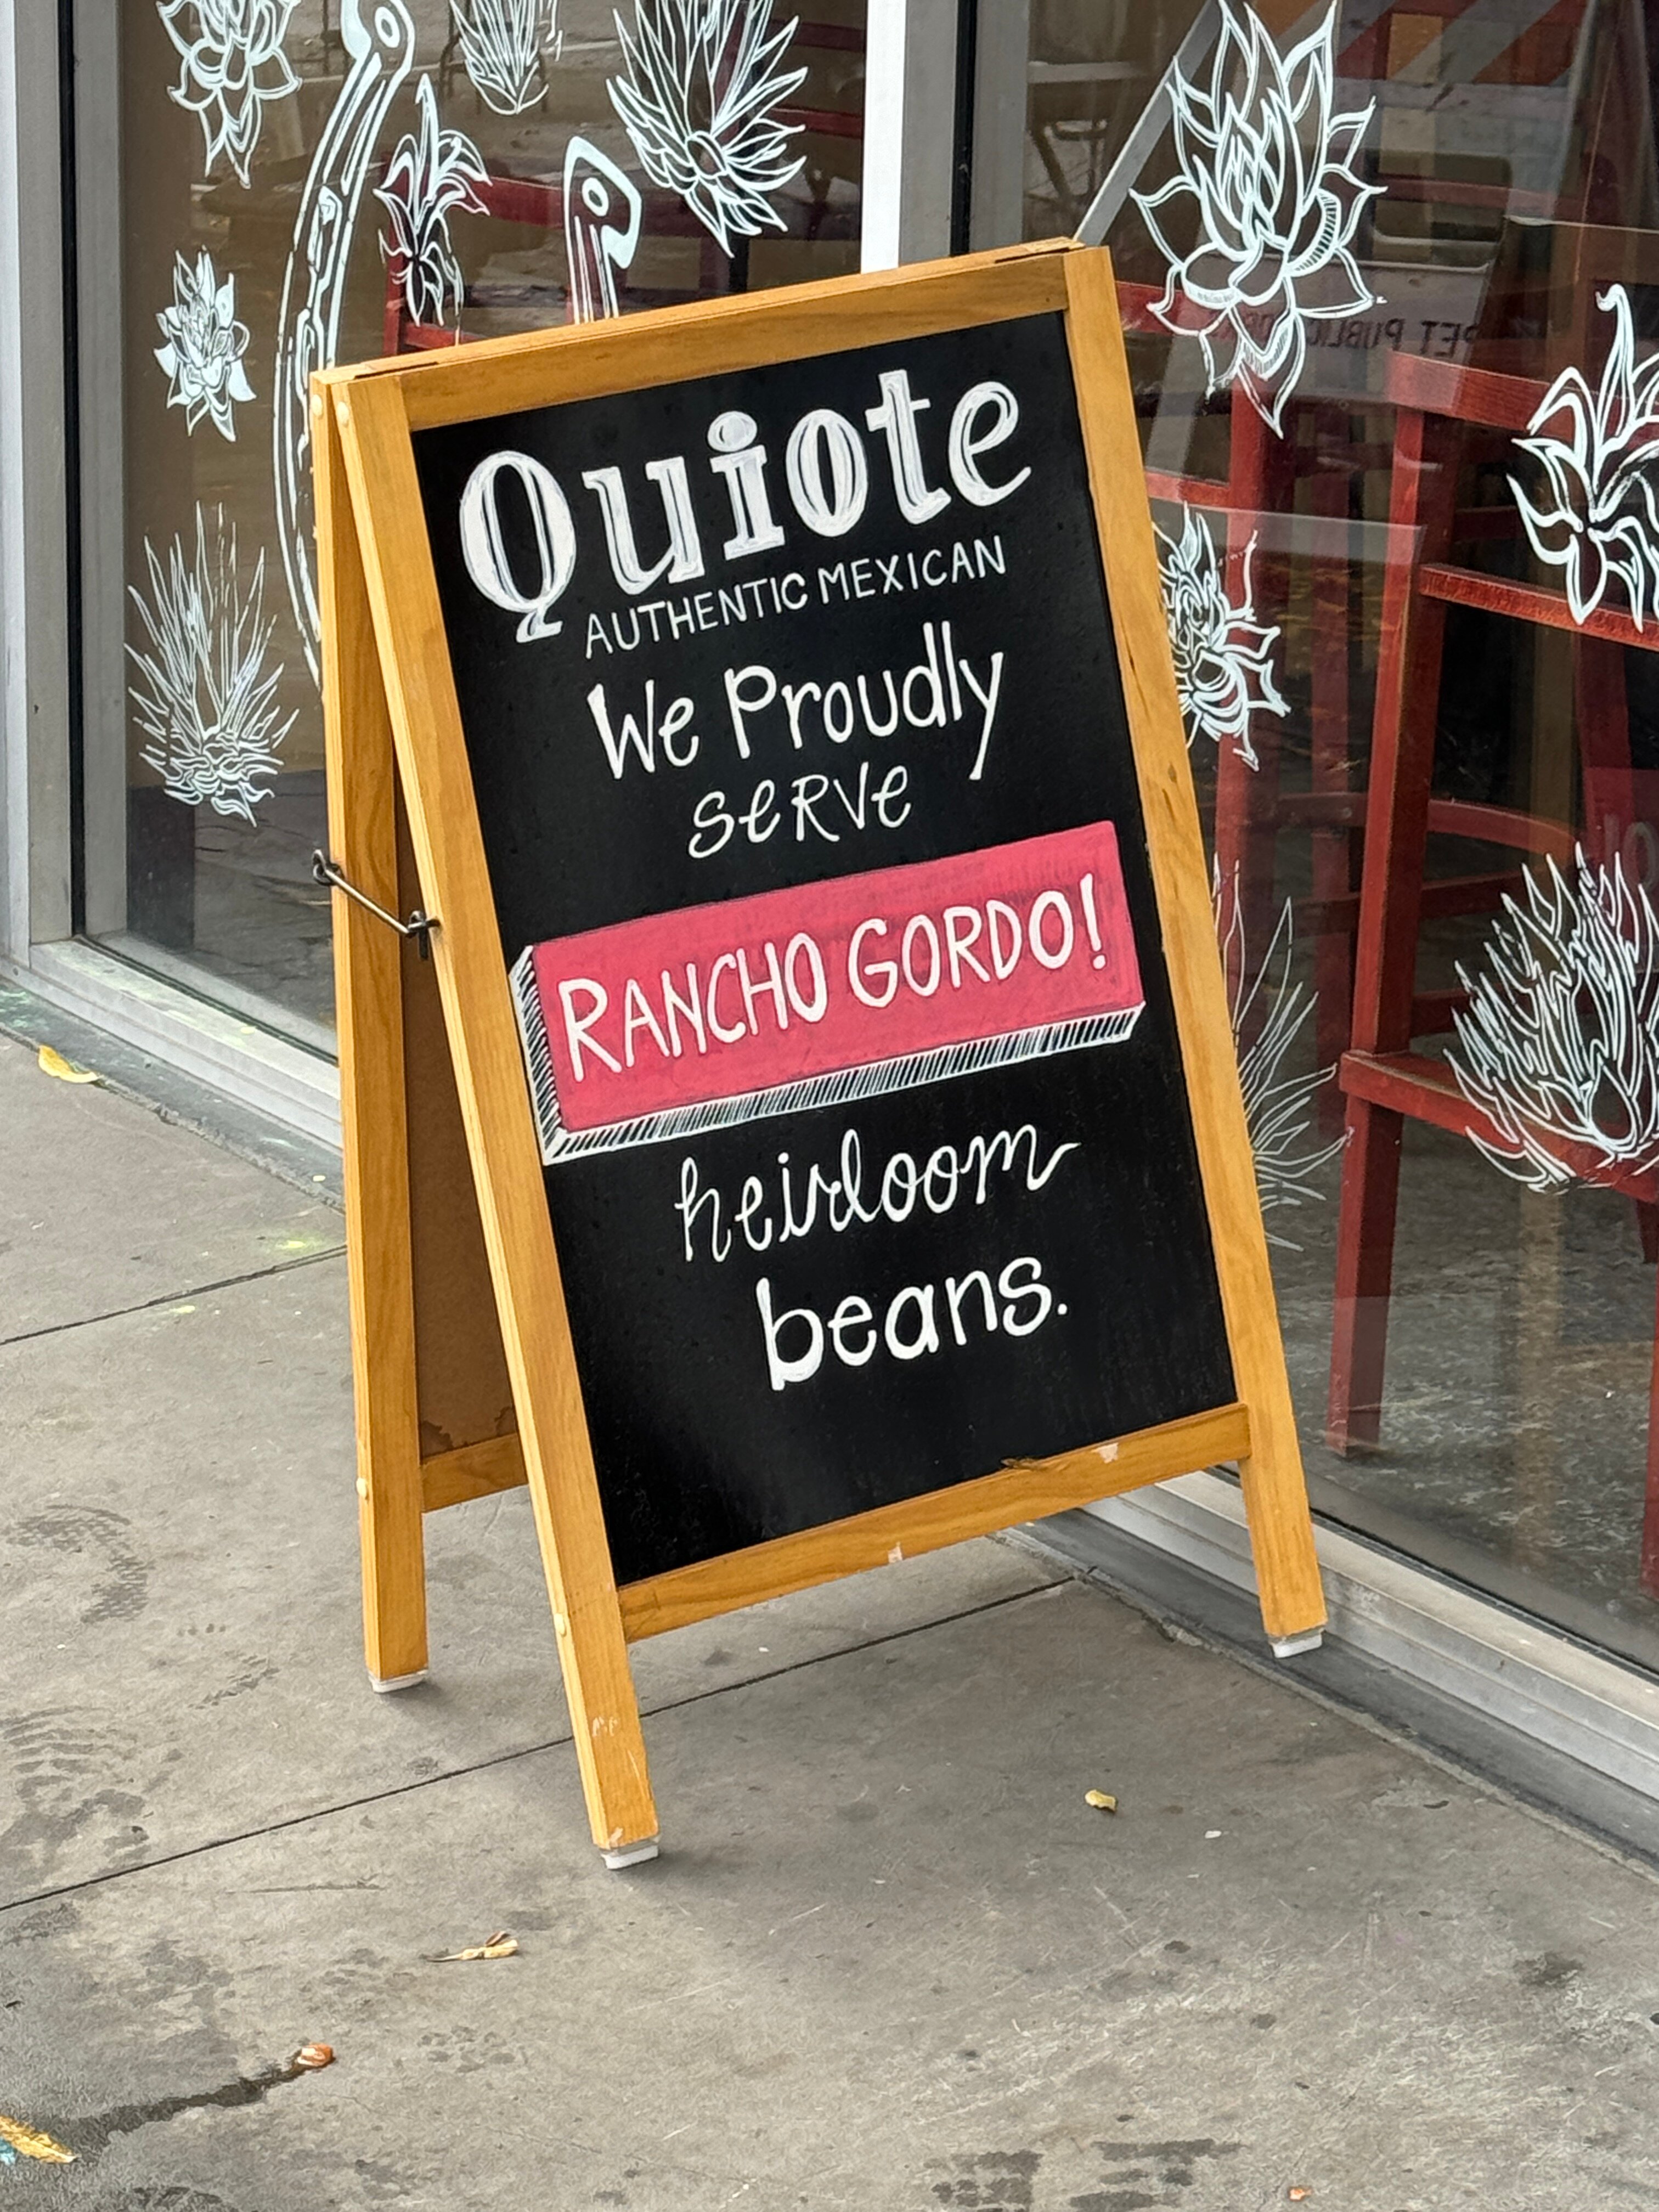 Quiote
AUTHENTIC MEXICAN
We Proudly
seRVe
RANCHO GORDO!
heirloom
beans.